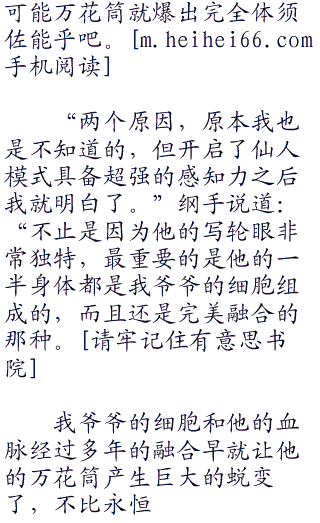 可能万花筒就爆出完全体须
佐能乎吧。[m.heihei66.com
手机阅读]
“两个原因，原本我也
是不知道的，但开启了仙人
模式具备超强的感知力之后
我就明白了。”纲手说道：
“不止是因为他的写轮眼非
常独特，最重要的是他的一
半身体都是我爷爷的细胞组
成的，而且还是完美融合的
那种。[请牢记住有意思书
院]
我爷爷的细胞和他的血
脉经过多年的融合早就让他
的万花筒产生巨大的蜕变
了，不比永恒